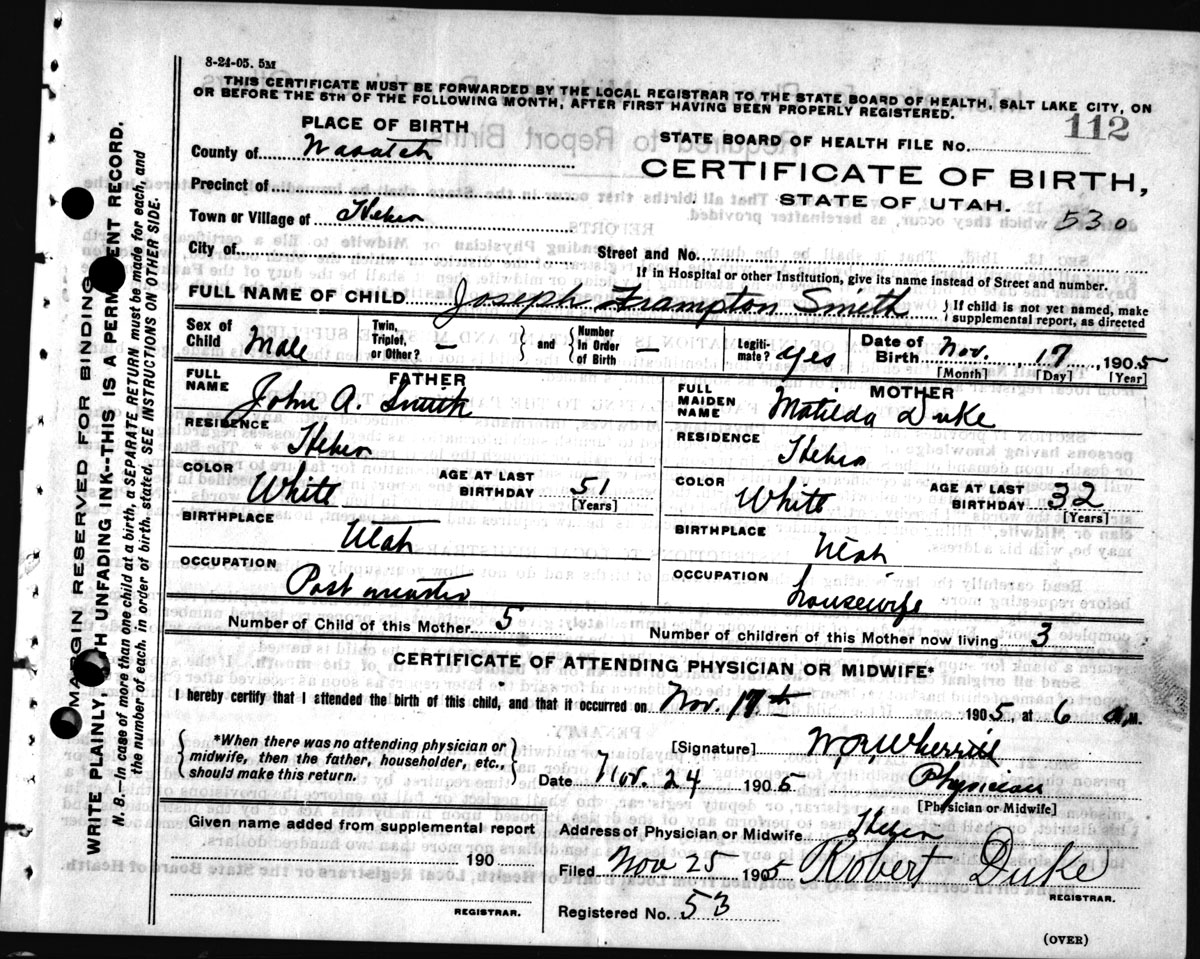 8-24-05. 5M
THIS CERTIFICATE MUST BE FORWARDED BY THE LOCAL REGISTRAR TO THE STATE BOARD OF HEALTH, SALT LAKE CITY, ON
OR BEFORE THE 5TH OF THE FOLLOWING MONTH, AFTER FIRST HAVING BEEN PROPERLY REGISTERED.
112
PLACE OF BIRTH
STATE BOARD OF HEALTH FILE No.
County of Wasatch
CERTIFICATE OF BIRTH,
Precinct of
STATE OF UTAH.
Town or Village of Heber
530
City of
Street and No.
If in Hospital or other Institution, give its name instead of Street and number.
FULL NAME OF CHILD Joseph Frampton Smith
} If child is not yet named, make supplemental report, as directed
Sex of Child Male
Twin, Triplet, or Other? — } and { Number in Order of Birth —
Legiti-mate? yes
Date of Birth Nov. 17, 1905
[Month] [Day] [Year]
FATHER
FULL NAME John A. Smith
RESIDENCE Heber
COLOR White
AGE AT LAST BIRTHDAY 51
[Years]
BIRTHPLACE Utah
OCCUPATION Post master
MOTHER
FULL MAIDEN NAME Matilda Duke
RESIDENCE Heber
COLOR White
AGE AT LAST BIRTHDAY 32
[Years]
BIRTHPLACE Utah
OCCUPATION housewife
Number of Child of this Mother 5
Number of children of this Mother now living 3
CERTIFICATE OF ATTENDING PHYSICIAN OR MIDWIFE*
I hereby certify that I attended the birth of this child, and that it occurred on Nov. 17th 1905 at 6 a.M.
{ *When there was no attending physician or
midwife, then the father, householder, etc.,
should make this return. }
[Signature]
Date Nov. 24 1905 Physician
[Physician or Midwife]
Given name added from supplemental report
190
REGISTRAR.
Address of Physician or Midwife Heber
Filed Nov 25 1905 Robert Duke
REGISTRAR.
Registered No. 53
(OVER)
MARGIN RESERVED FOR BINDING
WRITE PLAINLY WITH UNFADING INK--THIS IS A PERMANENT RECORD.
N. B.—In case of more than one child at a birth, a SEPARATE RETURN must be made for each, and
the number of each, in order of birth, stated. SEE INSTRUCTIONS ON OTHER SIDE.